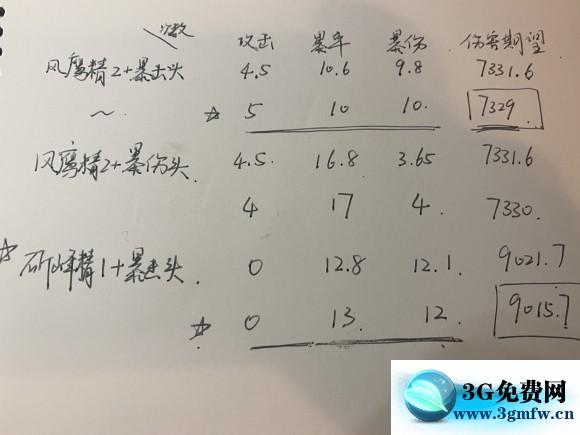 次数 攻击 暴率 暴伤 伤害期望
风鹰精2+暴击头 4.5 10.6 9.8 7331.6
~ ☆ 5 10 10. 7329
风鹰精2+暴伤头 4.5. 16.8 3.65 7331.6
4 17 4. 7330.
☆ 斫峰精1+暴击头. 0 12.8 12.1. 9021.7
☆ 0 13. 12. 9015.7
3G免费网
www.3gmfw.cn